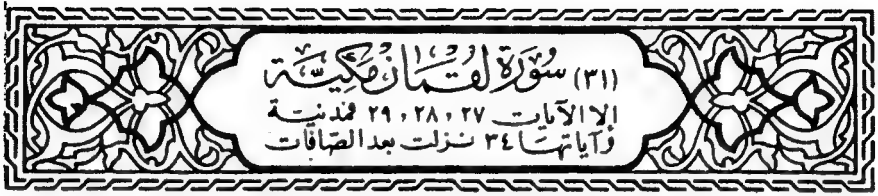 (٣١) سُورَة لقمَان مَكيَّة
إلا الآيات ٢٧، ٢٨، ٢٩ فمدنية
وآياتها ٣٤ نزلت بعد الصّافات